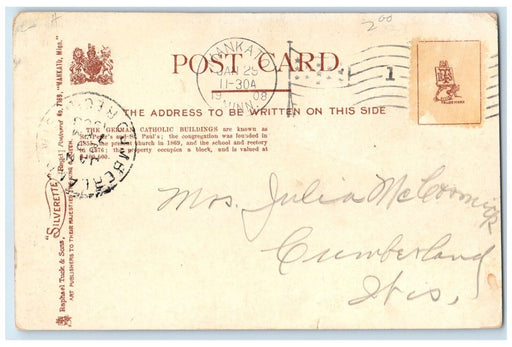 2.00
POST CARD.
MANKATO
JAN 29
11-30A
1908
MINN.
1
TRADE MARK
THE ADDRESS TO BE WRITTEN ON THIS SIDE
THE GERMAN CATHOLIC BUILDINGS are known as
St. Peter's and St. Paul's; the congregation was founded in
church in 1869, and the school and rectory
in 1876; the property occupies a block, and is valued at
CUMBERLA
REC
Mrs. Julia McCormick
Cumberland
Wis,
"SILVERETTE" Postcard No. 2369, "MANKATO, Minn."
Raphael Tuck & Sons,
ART PUBLISHERS TO THEIR MAJESTIES